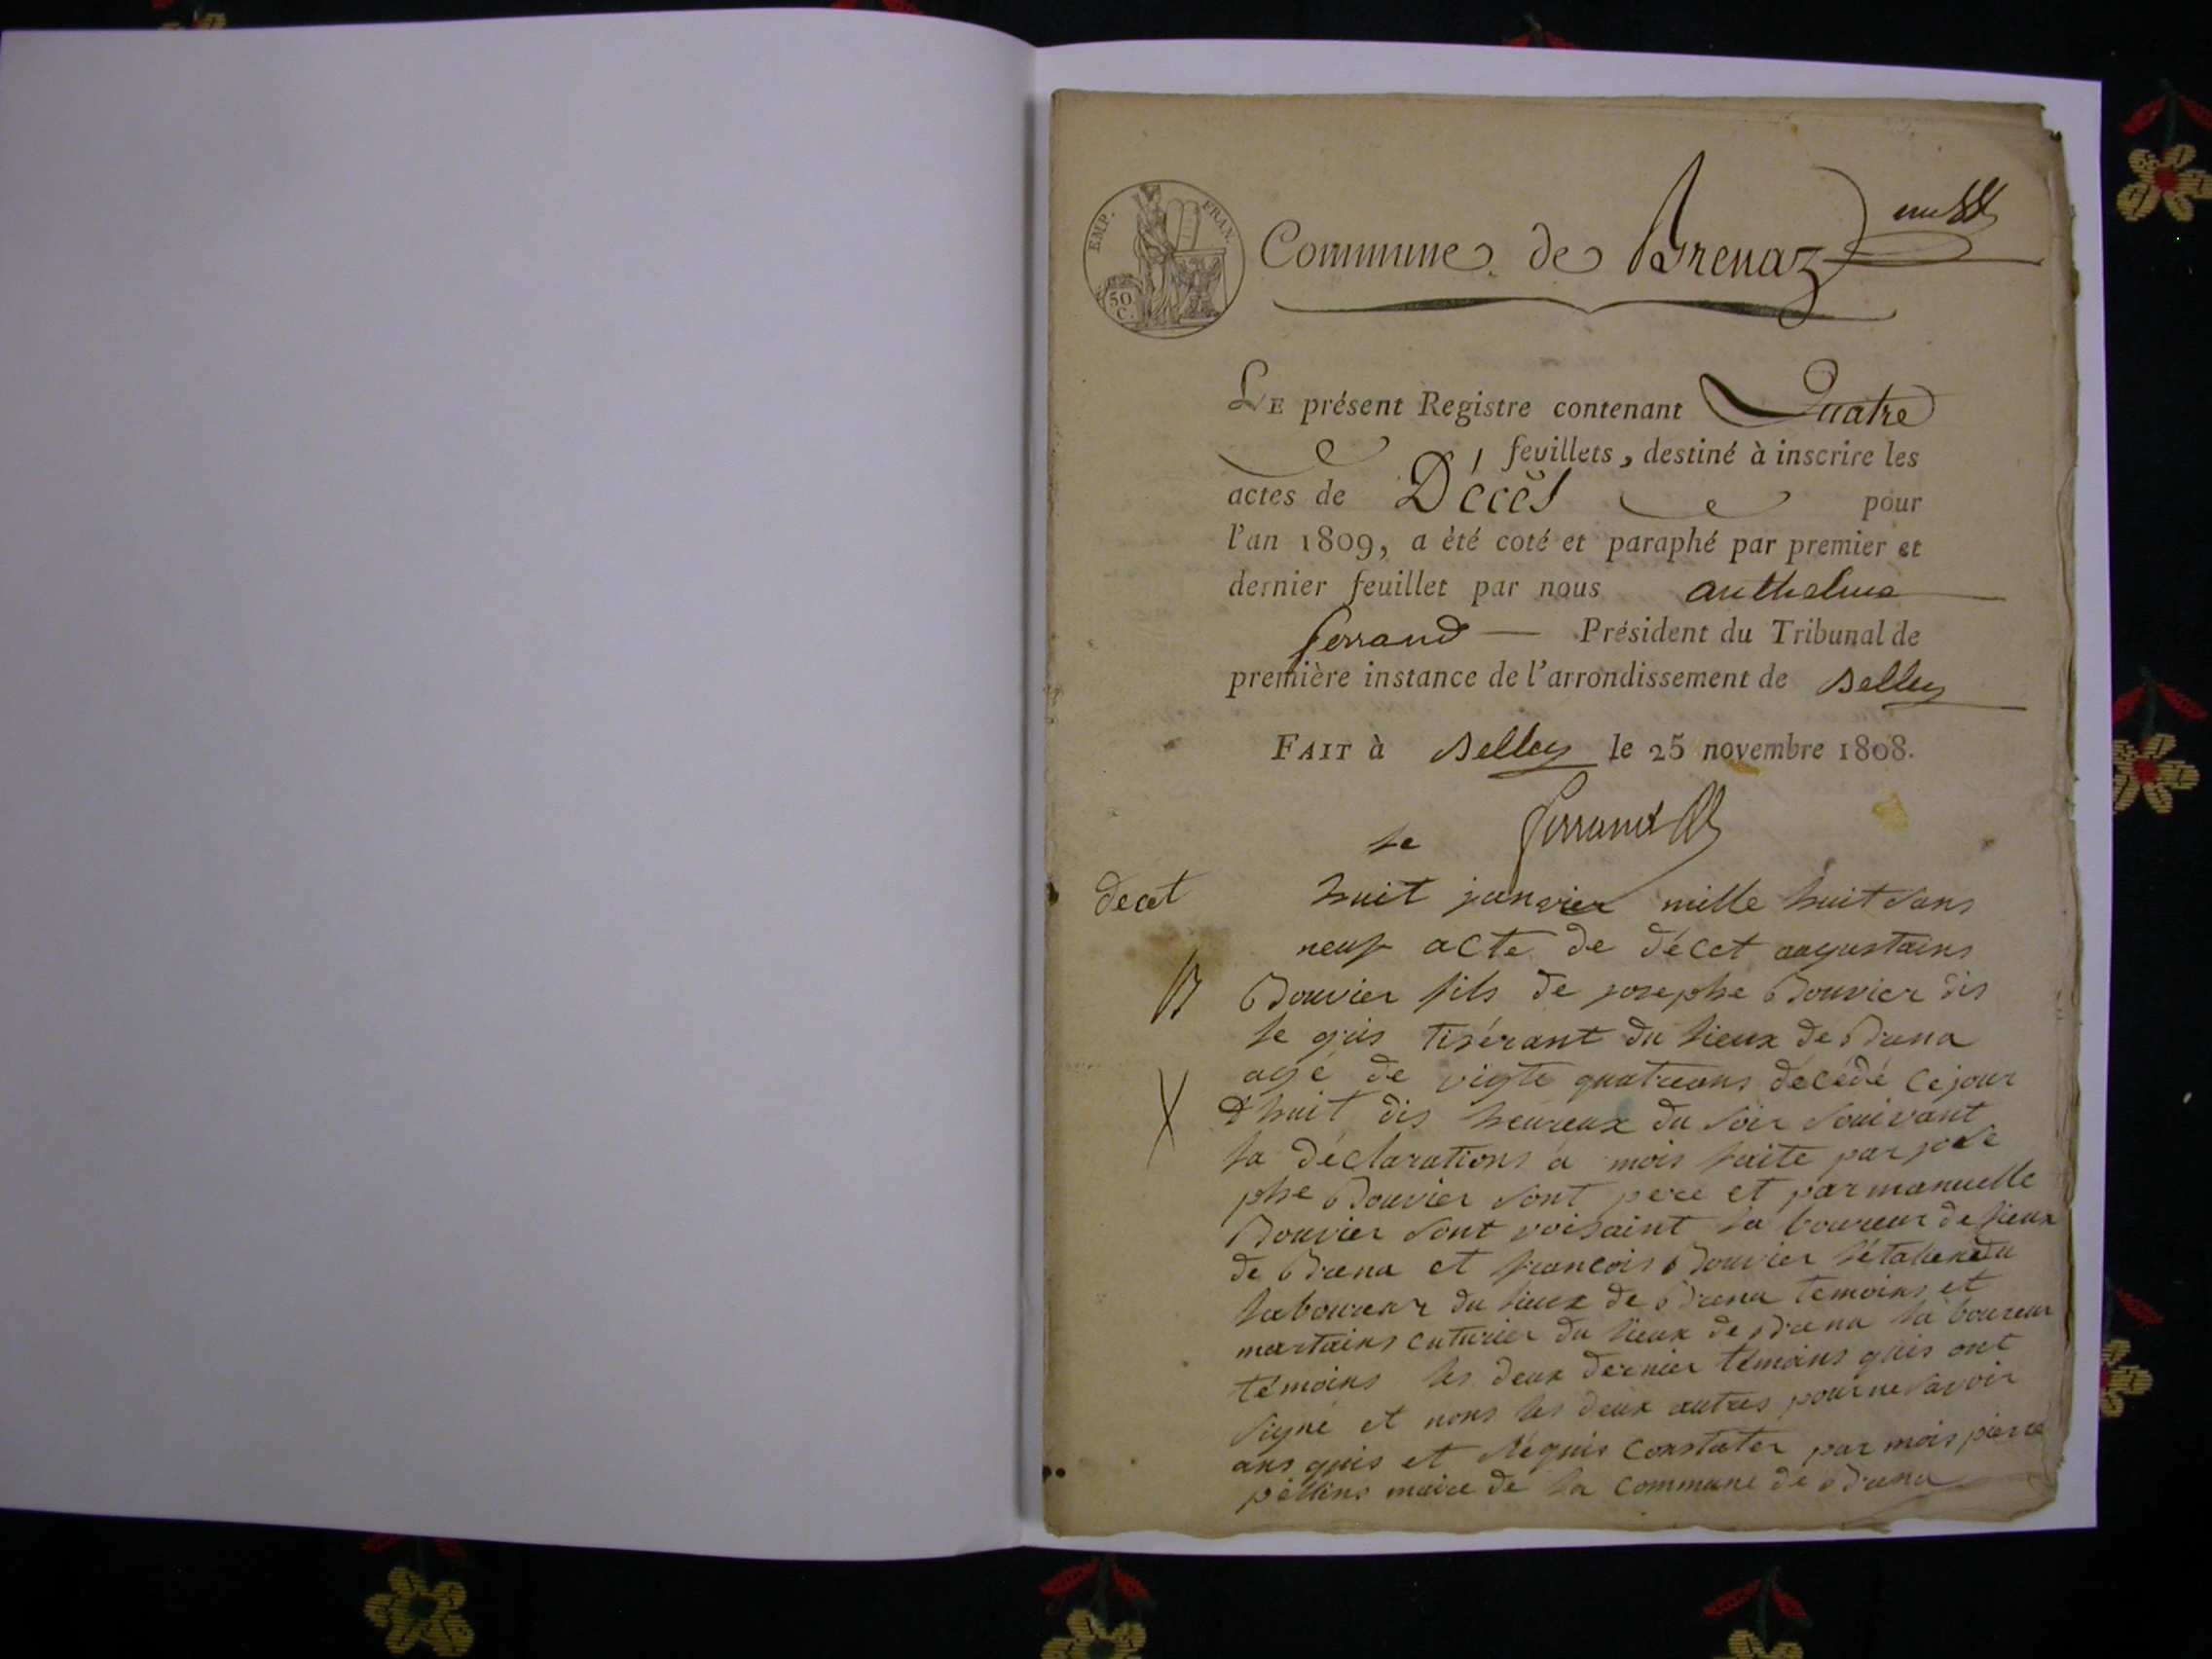 EMP. FRAN.
50 C.
Commune de Brenaz
LE présent Registre contenant Quatre
feuillets, destiné à inscrire les
actes de Décès pour
l'an 1809, a été coté et paraphé par premier et
dernier feuillet par nous anthelme
ferrand — Président du Tribunal de
première instance de l'arrondissement de Belley
FAIT à Belley le 25 novembre 1808.
ferrand
le
decet huit janvier mille huit sans
neuf acte de décet augustains
B Bouvier fils de josephe Bouvier dis
le gris tisérant du lieux de Brena
agé de vigte quatreans décédé cejour
X d'huit dis heureux du soir souivant
la déclarations a mois faite par jose
phe Bouvier sont pere et par manuelle
Bouvier sont voisaint la boureur de lieux
de Brena et francois Bouvier
laboureur du lieux de Brena temoins et
martains cuturier du lieux de Brena la boureur
témoins les deux dernier témoins quis ont
signé et nons les deux autres pour ne savoir
ans quis et réquis constater par mois pierre
péllins maire de la commune de Brena